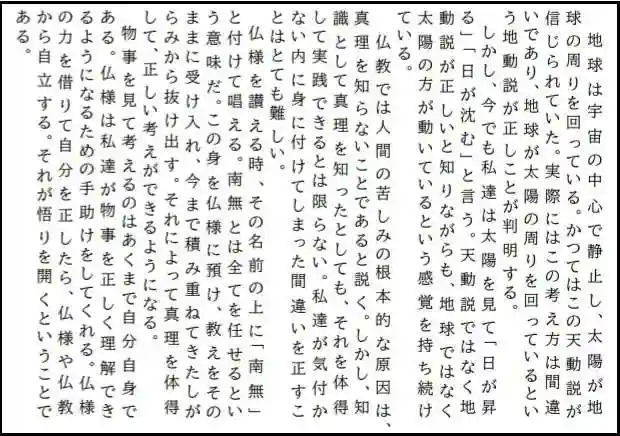 地球は宇宙の中心で静止し、太陽が地
球の周りを回っている。かつてはこの天動説が
信じられていた。実際にはこの考え方は間違
いであり、地球が太陽の周りを回っているとい
う地動説が正しことが判明する。
しかし、今でも私達は太陽を見て「日が昇
る」「日が沈む」と言う。天動説ではなく地
動説が正しいと知りながらも、地球ではなく
太陽の方が動いているという感覚を持ち続け
ている。
仏教では人間の苦しみの根本的な原因は、
真理を知らないことであると説く。しかし、知
識として真理を知ったとしても、それを体得
して実践できるとは限らない。私達が気付か
ない内に身に付けてしまった間違いを正すこ
とはとても難しい。
仏様を讃える時、その名前の上に「南無」
と付けて唱える。南無とは全てを任せるとい
う意味だ。この身を仏様に預け、教えをその
ままに受け入れ、今まで積み重ねてきたしが
らみから抜け出す。それによって真理を体得
して、正しい考えができるようになる。
物事を見て考えるのはあくまで自分自身で
ある。仏様は私達が物事を正しく理解でき
るようになるための手助けをしてくれる。仏様
の力を借りて自分を正したら、仏様や仏教
から自立する。それが悟りを開くということで
ある。